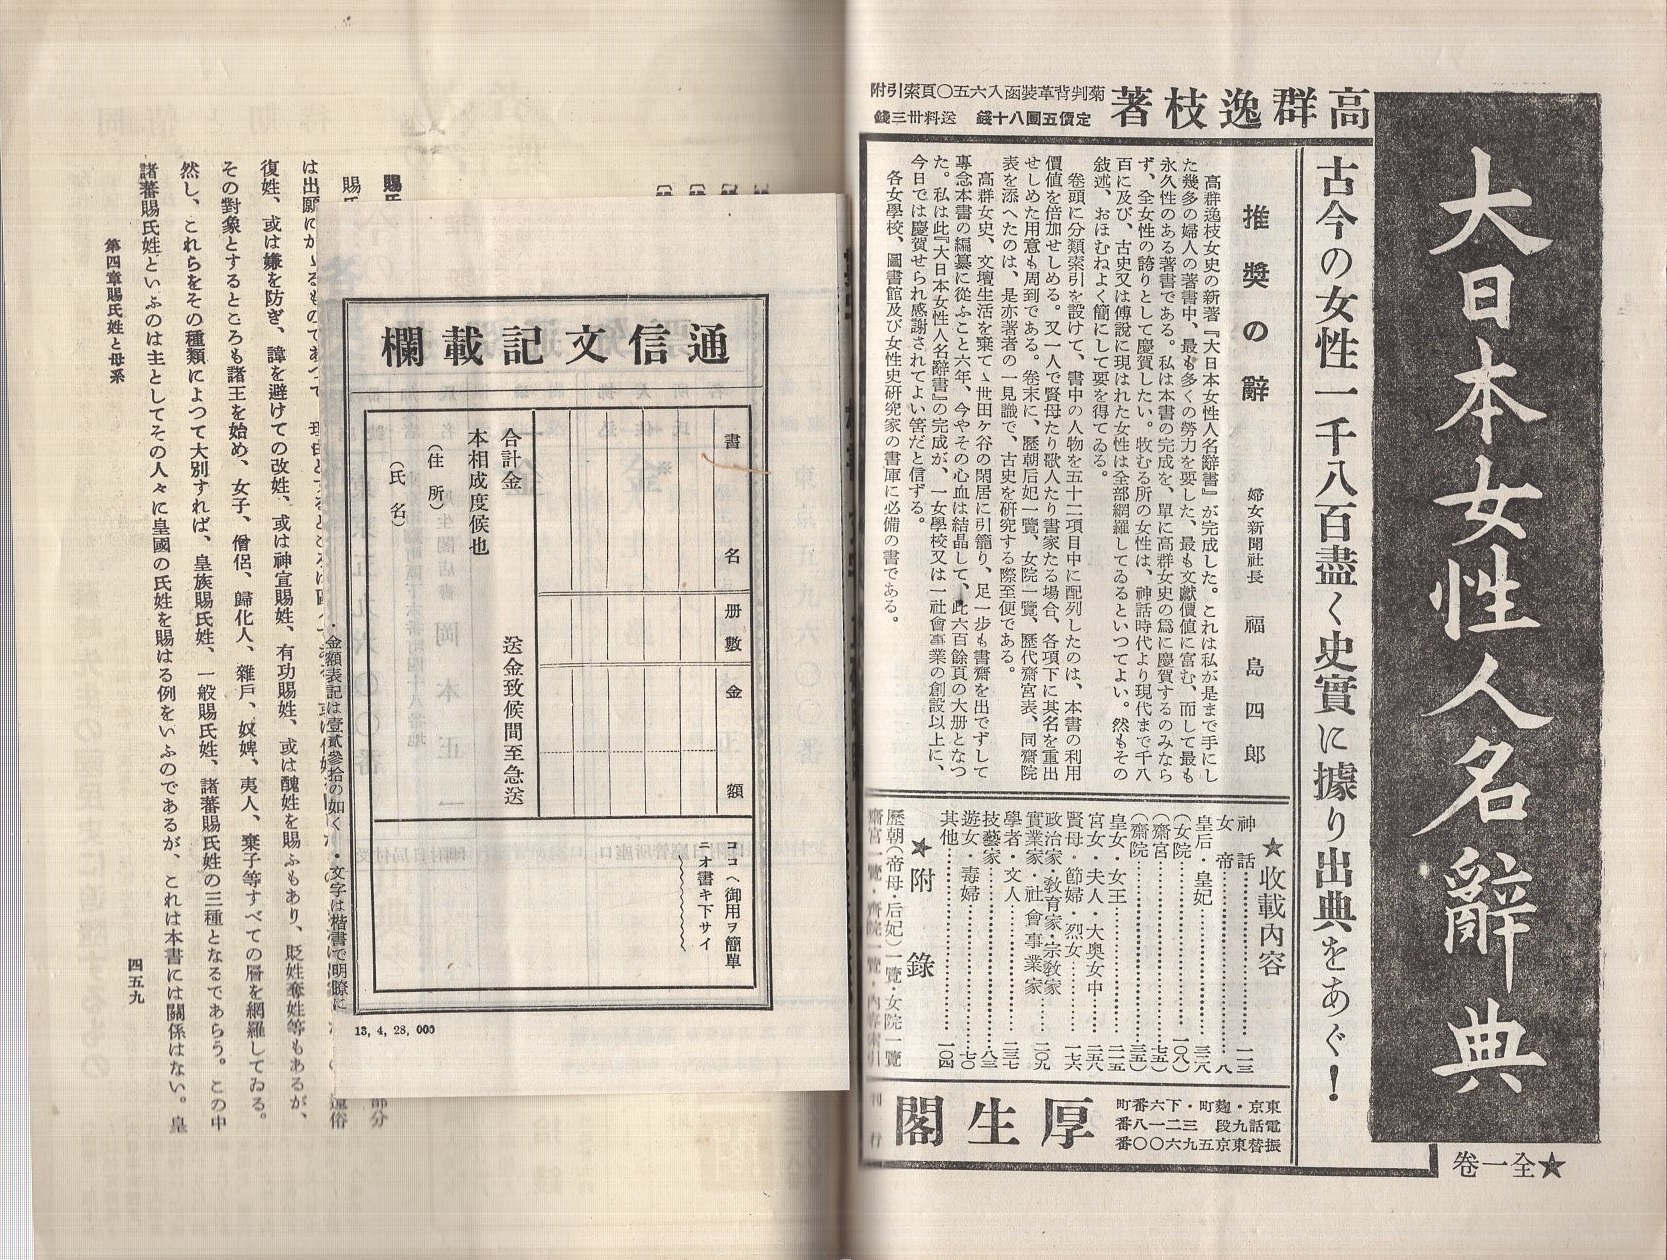 大日本女性人名辭典
★全一卷
高群逸枝著
菊判背革裝函入六五〇頁索引附
定價五圓八十錢　送料卅三錢
古今の女性一千八百盡く史實に據り出典をあぐ！
推奬の辭
婦女新聞社長　福島四郎
高群逸枝女史の新著『大日本女性人名辭書』が完成した。これは私が是まで手にし
た幾多の婦人の著書中、最も多くの勞力を要した、最も文獻價値に富む、而して最も
永久性のある著書である。私は本書の完成を、單に高群女史の爲に慶賀するのみなら
ず、全女性の誇りとして慶賀したい。收むる所の女性は、神話時代より現代まで千八
百に及び、古史又は傳說に現はれた女性は全部網羅してゐるといつてよい。然もその
敍述、おほむねよく簡にして要を得てゐる。
卷頭に分類索引を設けて、書中の人物を五十二項目中に配列したのは、本書の利用
價値を倍加せしめる。又一人で賢母たり歌人たり書家たる場合、各項下に其名を重出
せしめた用意も周到である。卷末に、歷朝后妃一覽、女院一覽、歷代齋宮表、同齋院
表を添へたのは、是亦著者の一見識で、古史を硏究する際至便である。
高群女史、文壇生活を棄てゝ世田ヶ谷の閑居に引籠り、足一步も書齋を出でずして
專念本書の編纂に從ふこと六年、今やその心血は結晶して、此六百餘頁の大册となつ
た。私は此『大日本女性人名辭書』の完成が、一女學校又は一社會事業の創設以上に、
今日では慶賀せられ感謝されてよい筈だと信ずる。
各女學校、圖書館及び女性史硏究家の書庫に必備の書である。
★收載內容
神話……一二三
女帝……八
皇后・皇妃……三二八
(女院……一〇八)
(齋宮……七五)
(齋院……三五)
皇女・女王……二二五
宮女・夫人・大奧女中……二五八
賢母・節婦・烈女……一七六
政治家・敎育家・宗敎家
實業家・社會事業家……二〇九
學者・文人……二三七
技藝家……八三
遊女・毒婦……七〇
其他……一〇四
★附錄
歷朝(帝母・后妃)一覽・女院一覽
齋宮一覽・齋院一覽・內容索引
東京・麴町・下六番町
電話九段三一八番
振替東京五九六〇〇番
厚生閣
刊行
通信文記載欄
書名
册數
金額
合計金
送金致候間至急送
本相成度候也
（住所）
（氏名）
ココヘ御用ヲ簡單
ニオ書キ下サイ
・金額表記は壹貳參拾の如く・文字は楷書で明瞭に
13, 4, 28, 000
賜氏
賜氏
復姓、或は嫌を防ぎ、諱を避けての改姓、或は神宣賜姓、有功賜姓、或は醜姓を賜ふもあり、貶姓奪姓等もあるが、
その對象とするところも諸王を始め、女子、僧侶、歸化人、雜戶、奴婢、夷人、棄子等すべての層を網羅してゐる。
然し、これらをその種類によつて大別すれば、皇族賜氏姓、一般賜氏姓、諸蕃賜氏姓の三種となるであらう。この中
諸蕃賜氏姓といふのは主としてその人々に皇國の氏姓を賜はる例をいふのであるが、これは本書には關係はない。皇
第四章賜氏姓と母系
四五九